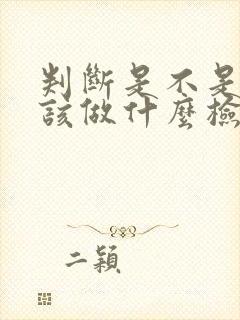 判斷是不是
該做什麼檢
二穎